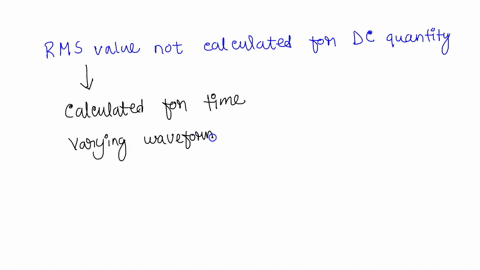 RMS value not calculated for DC quantity
Calculated for time
Varying waveform